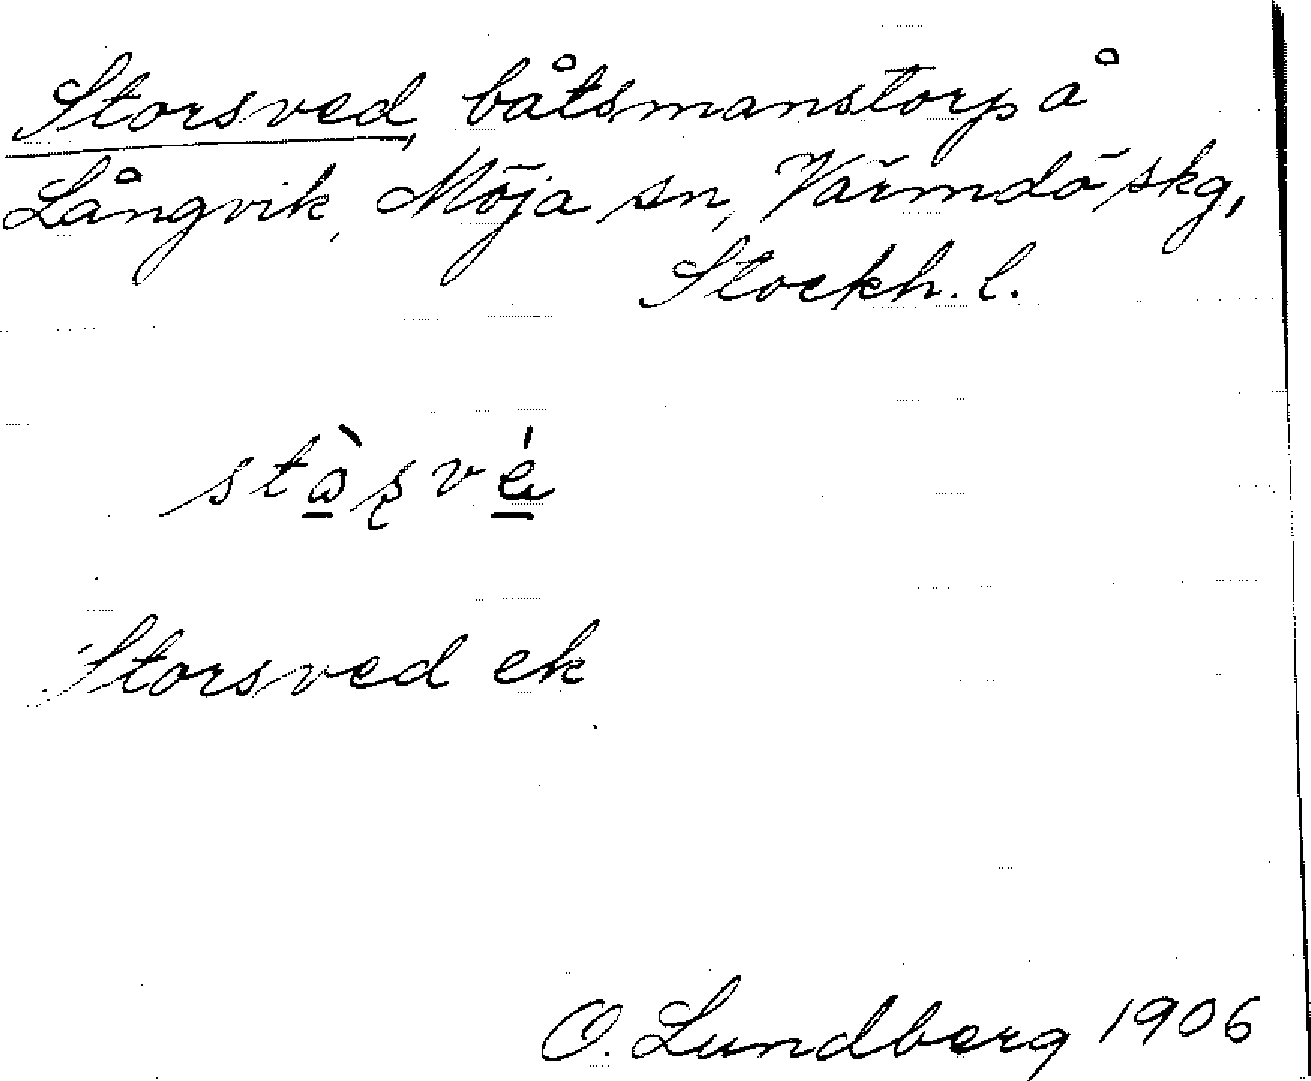 Storsved, båtsmanstorp å
Långvik, Möja sn, Värmdö skg,
Stockh. l.
Storsved ek
O. Lundberg 1906